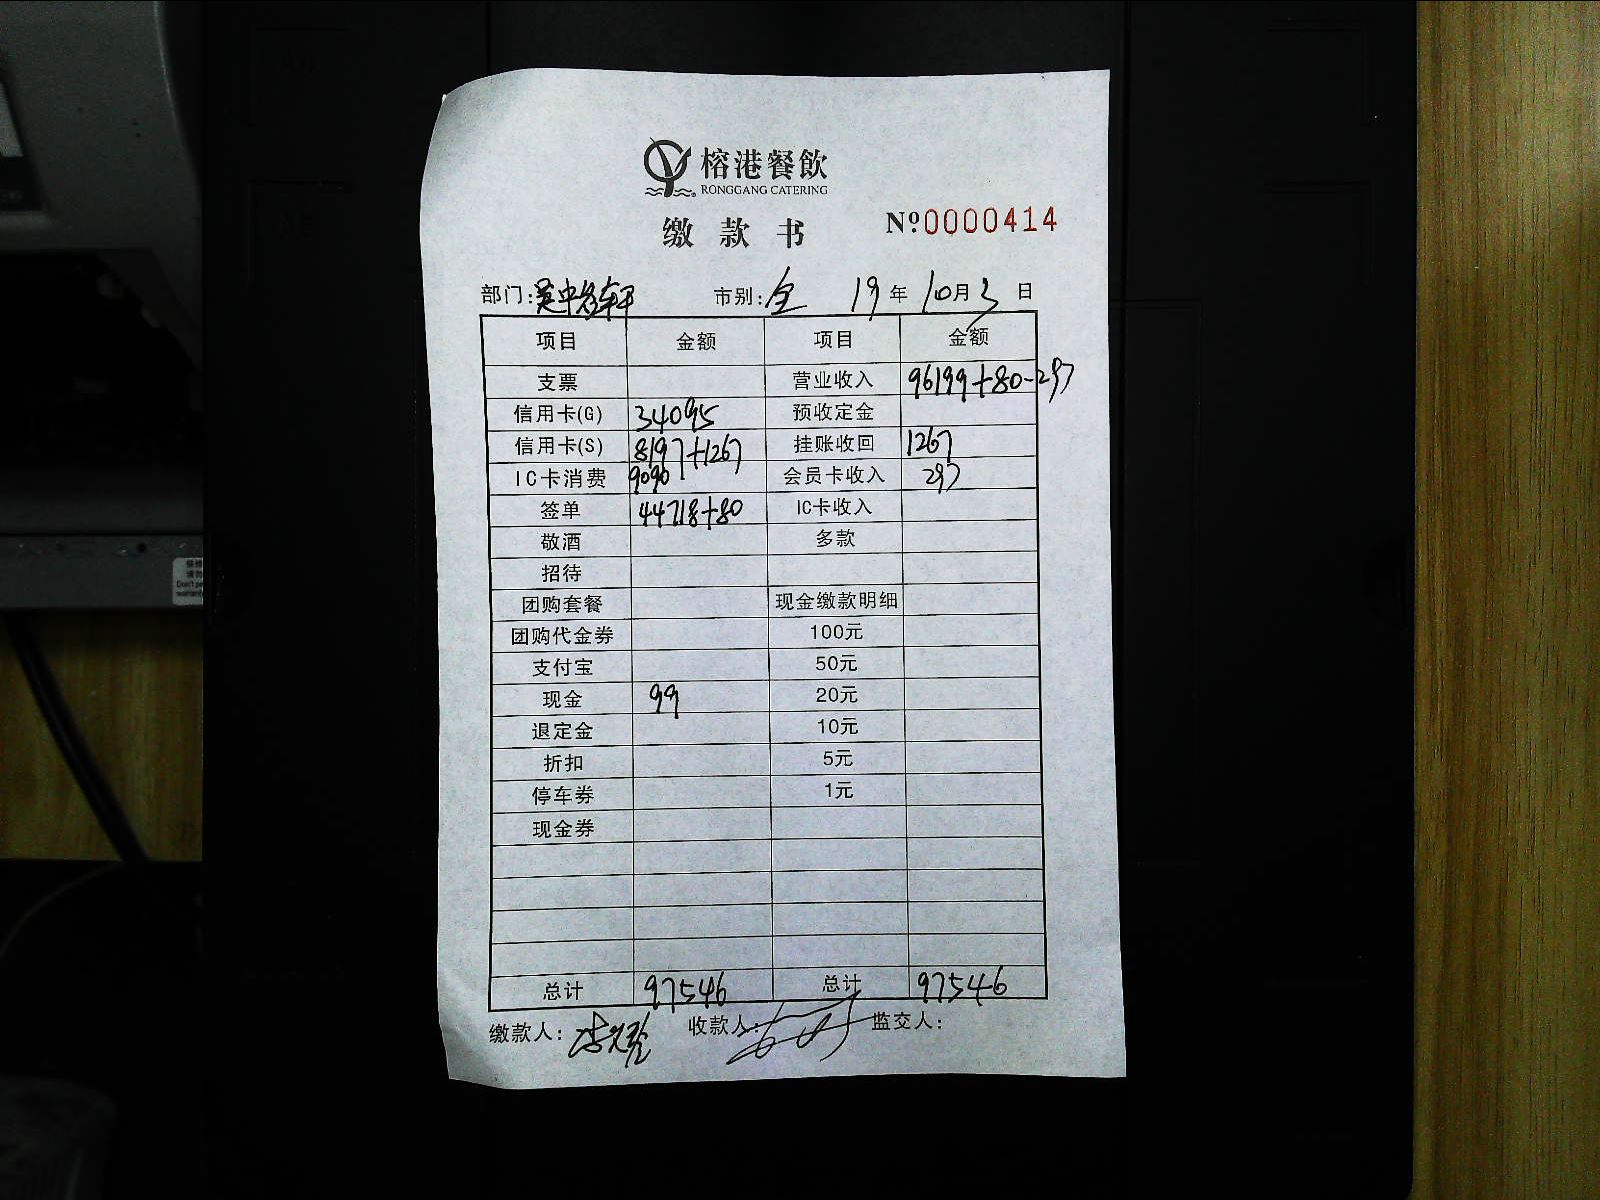 榕港餐飲
RONGGANG CATERING
缴款书 Nº0000414
部门: 市别:全 19年10月3日
项目 金额 项目 金额
支票 营业收入 96199+80-297
信用卡(G) 34095 预收定金
信用卡(S) 8197+1267 挂账收回 1267
IC卡消费 9090 会员卡收入 297
签单 44718+80 IC卡收入
敬酒 多款
招待
团购套餐 现金缴款明细
团购代金券 100元
支付宝 50元
现金 99 20元
退定金 10元
折扣 5元
停车券 1元
现金券
总计 97546 总计 97546
缴款人: 收款人: 监交人: